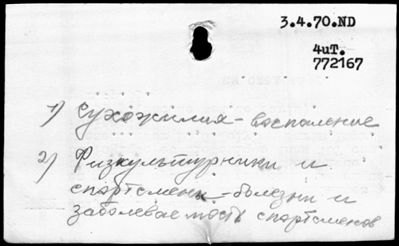 3.4.70.ND
4иТ.
772167
1) Сухожилия - воспаление
2) Физкультурники и
спортсмены - болезни и
заболеваемость спортсменов